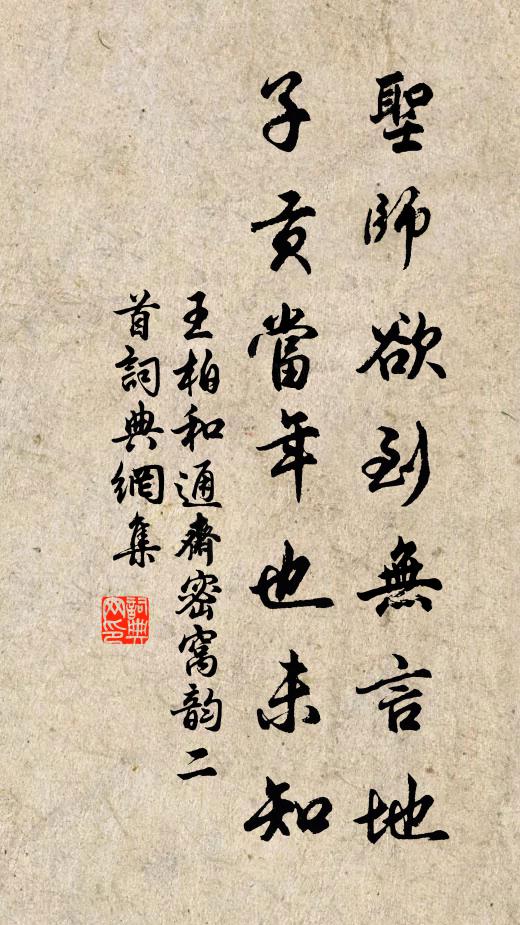 聖師欲到無言地
子貢當年也未知
王柏和通齋密窩韵二
首詞典網集
詞典網印